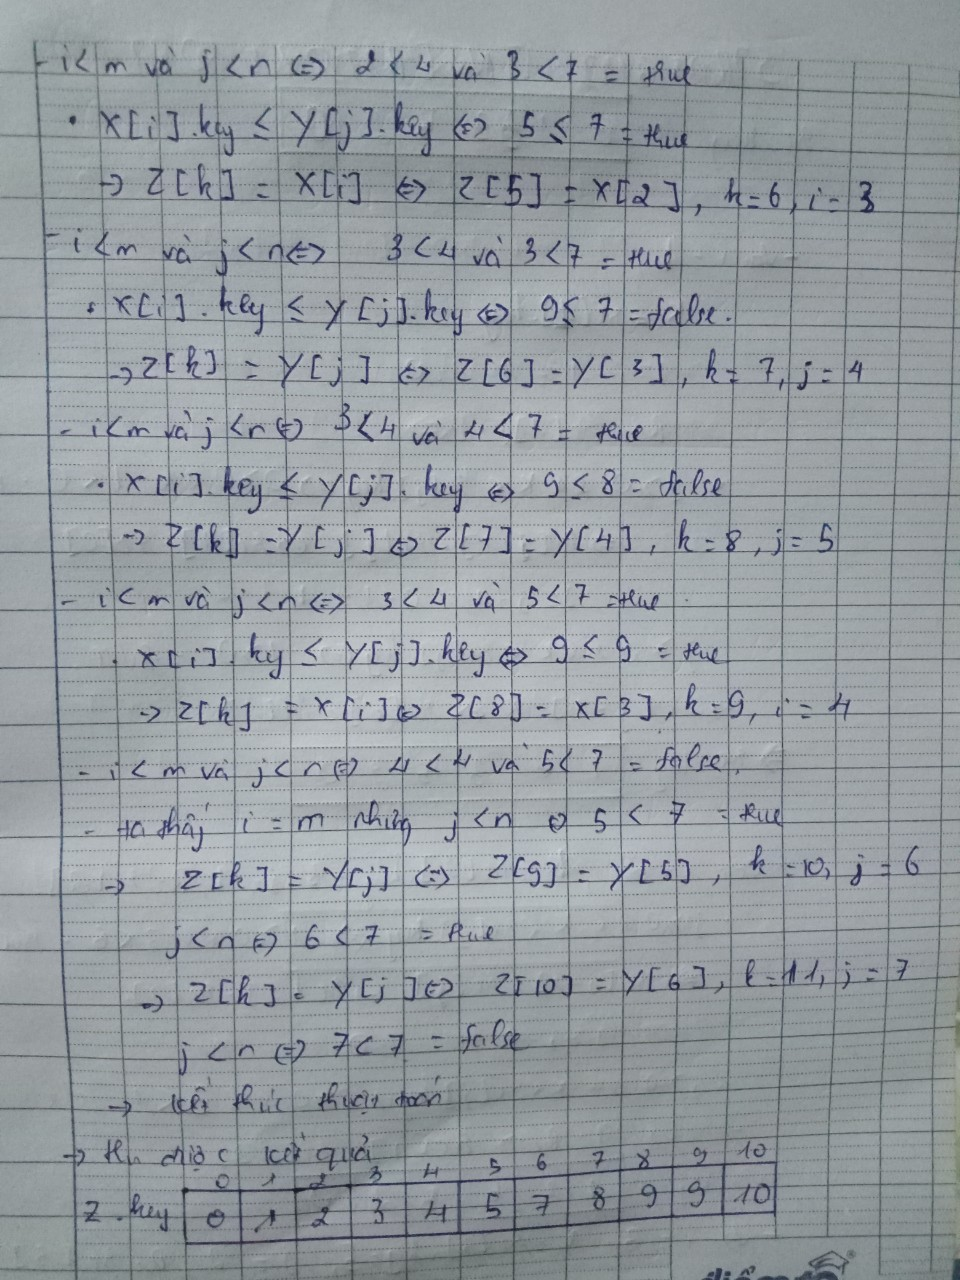 - i < m và j < n ⇔ 2 < 4 và 3 < 7 = true
• X[i].key ≤ Y[j].key ⇔ 5 ≤ 7 = true
→ Z[k] = X[i] ⇔ Z[5] = X[2], k=6, i=3
- i < m và j < n ⇔ 3 < 4 và 3 < 7 = true
• X[i].key ≤ Y[j].key ⇔ 9 ≤ 7 = false.
→ Z[k] = Y[j] ⇔ Z[6] = Y[3], k=7, j=4
- i < m và j < n ⇔ 3 < 4 và 4 < 7 = true
• X[i].key ≤ Y[j].key ⇔ 9 ≤ 8 = false
→ Z[k] = Y[j] ⇔ Z[7] = Y[4], k=8, j=5
- i < m và j < n ⇔ 3 < 4 và 5 < 7 = true
• X[i].key ≤ Y[j].key ⇔ 9 ≤ 9 = true
→ Z[k] = X[i] ⇔ Z[8] = X[3], k=9, i=4
- i < m và j < n ⇔ 4 < 4 và 5 < 7 = false.
- ta thấy i = m nhưng j < n ⇔ 5 < 7 = true
→ Z[k] = Y[j] ⇔ Z[9] = Y[5], k=10, j=6
j < n ⇔ 6 < 7 = true
→ Z[k] = Y[j] ⇔ Z[10] = Y[6], k=11, j=7
j < n ⇔ 7 < 7 = false
→ kết thúc thuật toán
→ thu được kết quả
0 1 2 3 4 5 6 7 8 9 10
Z.key 0 1 2 3 4 5 7 8 9 9 10